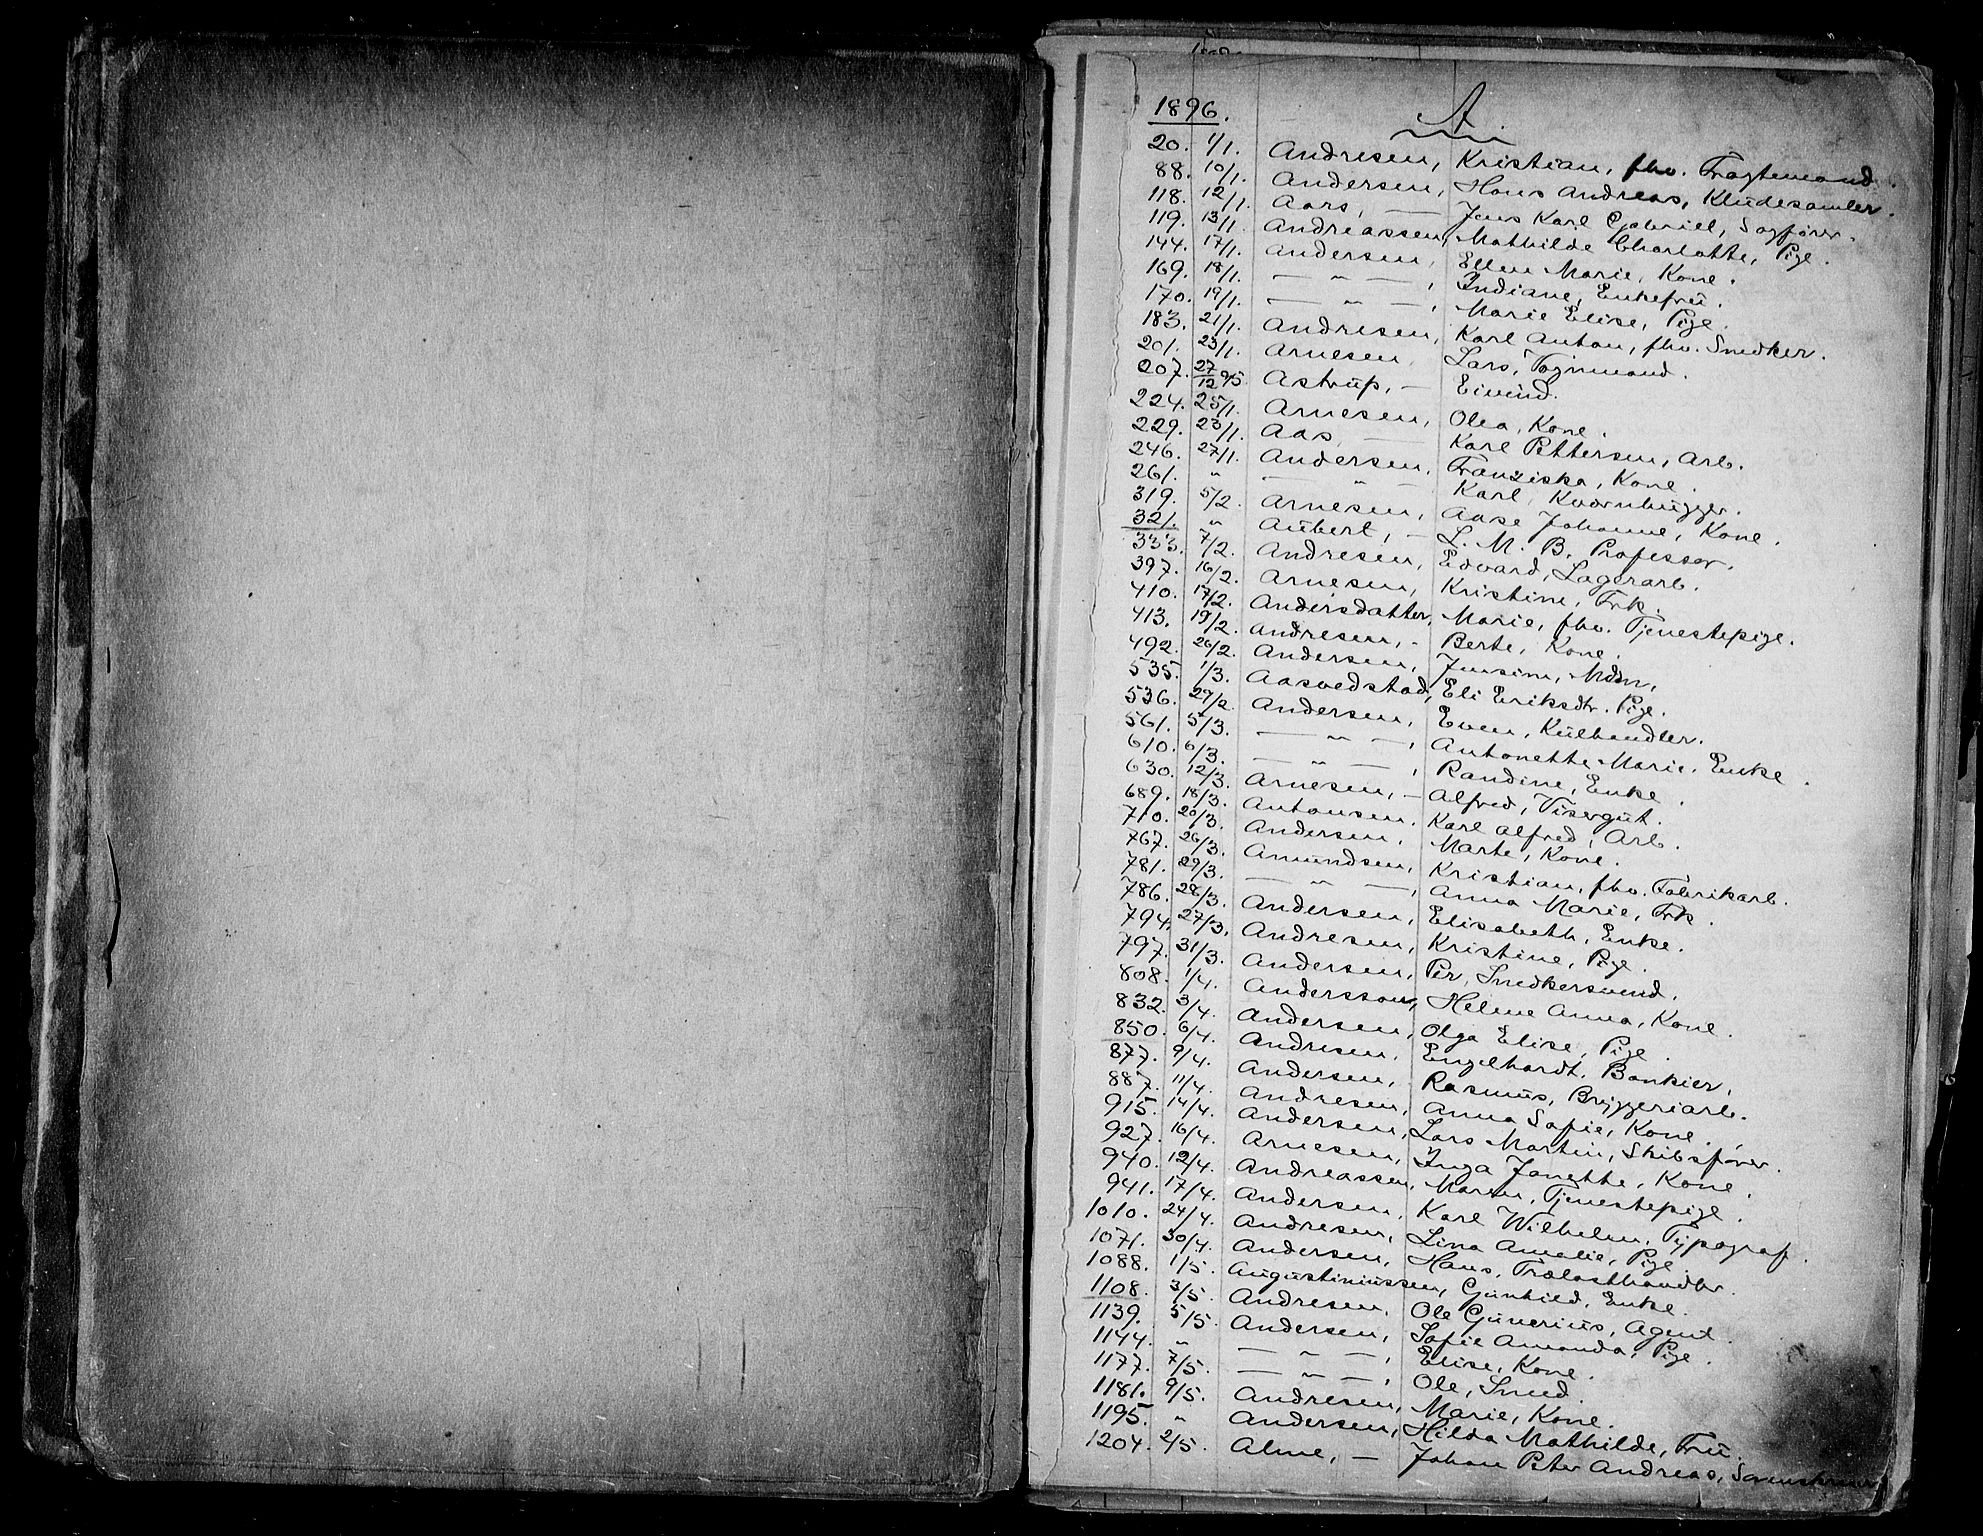 1896. A.
20. 1/1. Andresen, Kristian, fhv. Fragtemand.
88. 10/1. Andersen, Hans Andreas, Kludesamler.
118. 12/1. Aars, — Jens Karl Gabriel, Sagfører.
119. 13/1. Andreassen, Mathilde Charlotte, Pige.
144. 17/1. Andersen, Ellen Marie, Kone.
169. 18/1. — " —, Indiane, Enkefru.
170. 19/1. — " —, Marie Elise, Pige.
183. 21/1. Andresen, Karl Anton, fhv. Snedker.
201. 23/1. Arnesen, Lars, Vognmand.
207. 27/12 95 Astrup, — Eivind.
224. 25/1. Arnesen, Olea, Kone.
229. 23/1. Aas, — Karl Pettersen, Arb.
246. 27/1. Andersen, Franziska, Kone.
261. " — " — Karl, Kværnhugger.
319. 5/2. Arnesen, Aase Johanne, Kone.
321. " Aubert, — L. M. B. Professor.
333. 7/2. Andresen, Edvard, Lagerarb.
397. 16/2. Arnesen, Kristine, Frk.
410. 17/2. Andersdatter, Marie, fhv. Tjenestepige.
413. 19/2. Andresen, - Berte, Kone.
492. 26/2. Andersen, Jensine, Mdm.
535. 1/3. Aasvedstad, Eli Eriksdtr. Pige.
536. 29/2. Andersen, Even, Kulhandler.
561. 5/3. — " —, Antonette Marie, Enke.
610. 6/3. — " —, Randine, Enke.
630. 12/3. Arnesen, — Alfred, Visergut.
689. 18/3. Antonsen, Karl Alfred, Arb.
710. 20/3. Andersen, Marte, Kone.
767. 26/3. Amundsen, Kristian, fhv. Fabrikarb.
781. 29/3. — " —, Anna Marie, Frk.
786. 28/3. Andersen, Elisabeth, Enke.
794. 27/3. Andresen, Kristine, Pige.
797. 31/3. Andersen, Per, Snedkersvend.
808. 1/4. Andersson, Helene Anna, Kone.
832. 3/4. Andersen, Olga Elise, Pige.
850. 6/4. Andresen, Engelhardt, Bankier.
877. 9/4. Andersen, Rasmus, Bryggeriarb.
887. 11/4. Andresen, Anna Sofie, Kone.
915. 14/4. Andersen, Lars Martin, Skibsfører.
927. 16/4. Arnesen, Inga Janette, Kone.
940. 12/4. Andreassen, Maren, Tjenestepige.
941. 17/4. Andersen, Karl Wilhelm, Typograf.
1010. 24/4. Andresen, Lina Amalie, Pige.
1071. 30/4. Andersen, Hans, Trælasthandler.
1088. 1/5. Augustiniussen, Gunhild, Enke.
1108. 3/5. Andresen, Ole Gunerius, Agent.
1139. 5/5. Andersen, Sofie Amanda, Pige.
1144. " — " —, Elise, Kone.
1177. 7/5. — " —, Ole, Smed
1181. 9/5. Andresen, Marie, Kone.
1195. " Andersen, Hilda Mathilde, Fru.
1204. 2/5. Alme, — Johan Peter Andreas,